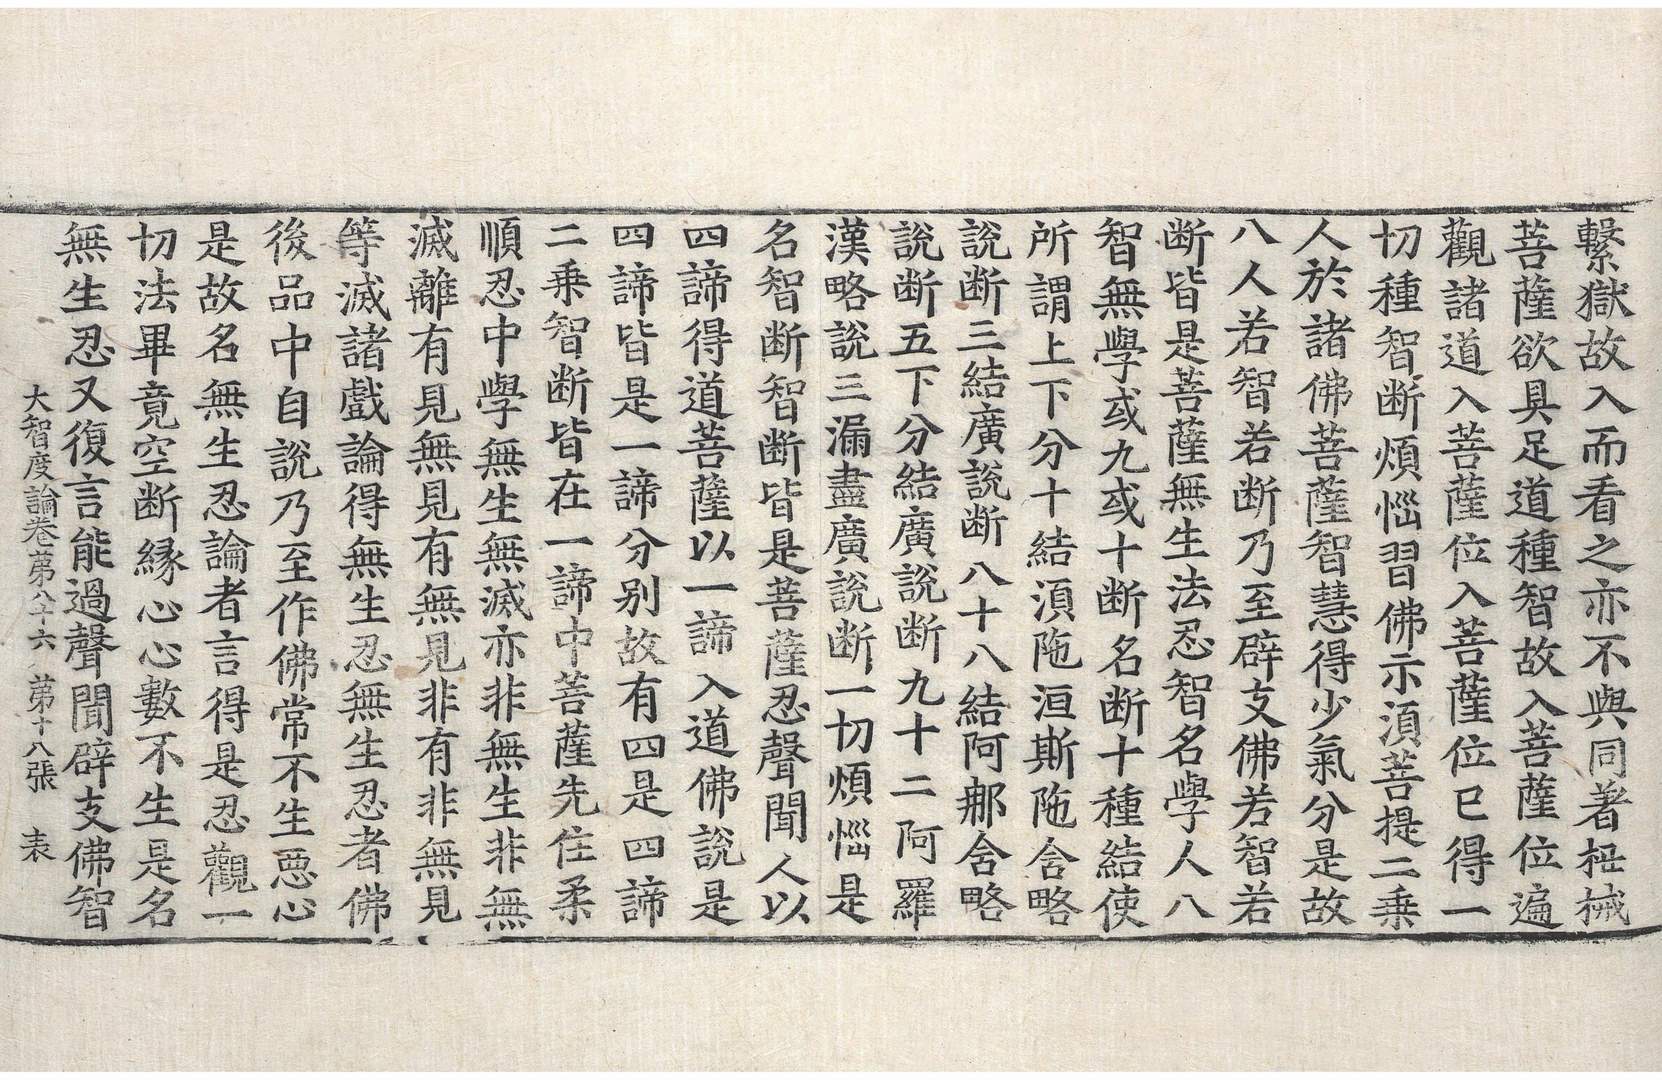 繫獄故入而看之亦不與同著杻械
菩薩欲具足道種智故入菩薩位遍
觀諸道入菩薩位入菩薩位已得一
切種智斷煩惱習佛示湏菩提二乗
人於諸佛菩薩智慧得少氣分是故
八人若智若断乃至辟支佛若智若
断皆是菩薩無生法忍智名學人八
智無學或九或十断名断十種結使
所謂上下分十結湏陁洹斯陁含略
說断三結廣說断八十八結阿那含略
說断五下分結廣說断九十二阿羅
漢略說三漏盡廣說断一切煩惱是
名智断智断皆是菩薩忍聲聞人以
四諦得道菩薩以一諦入道佛說是
四諦皆是一諦分别故有四是四諦
二乗智断皆在一諦中菩薩先住柔
順忍中學無生無滅亦非無生非無
滅離有見無見有無見非有非無見
等滅諸戲論得無生忍無生忍者佛
後品中自說乃至作佛常不生惡心
是故名無生忍論者言得是忍觀一
切法畢竟空断緣心心數不生是名
無生忍又復言能過聲聞辟支佛智
大智度論卷苐八十六　苐十八張　表